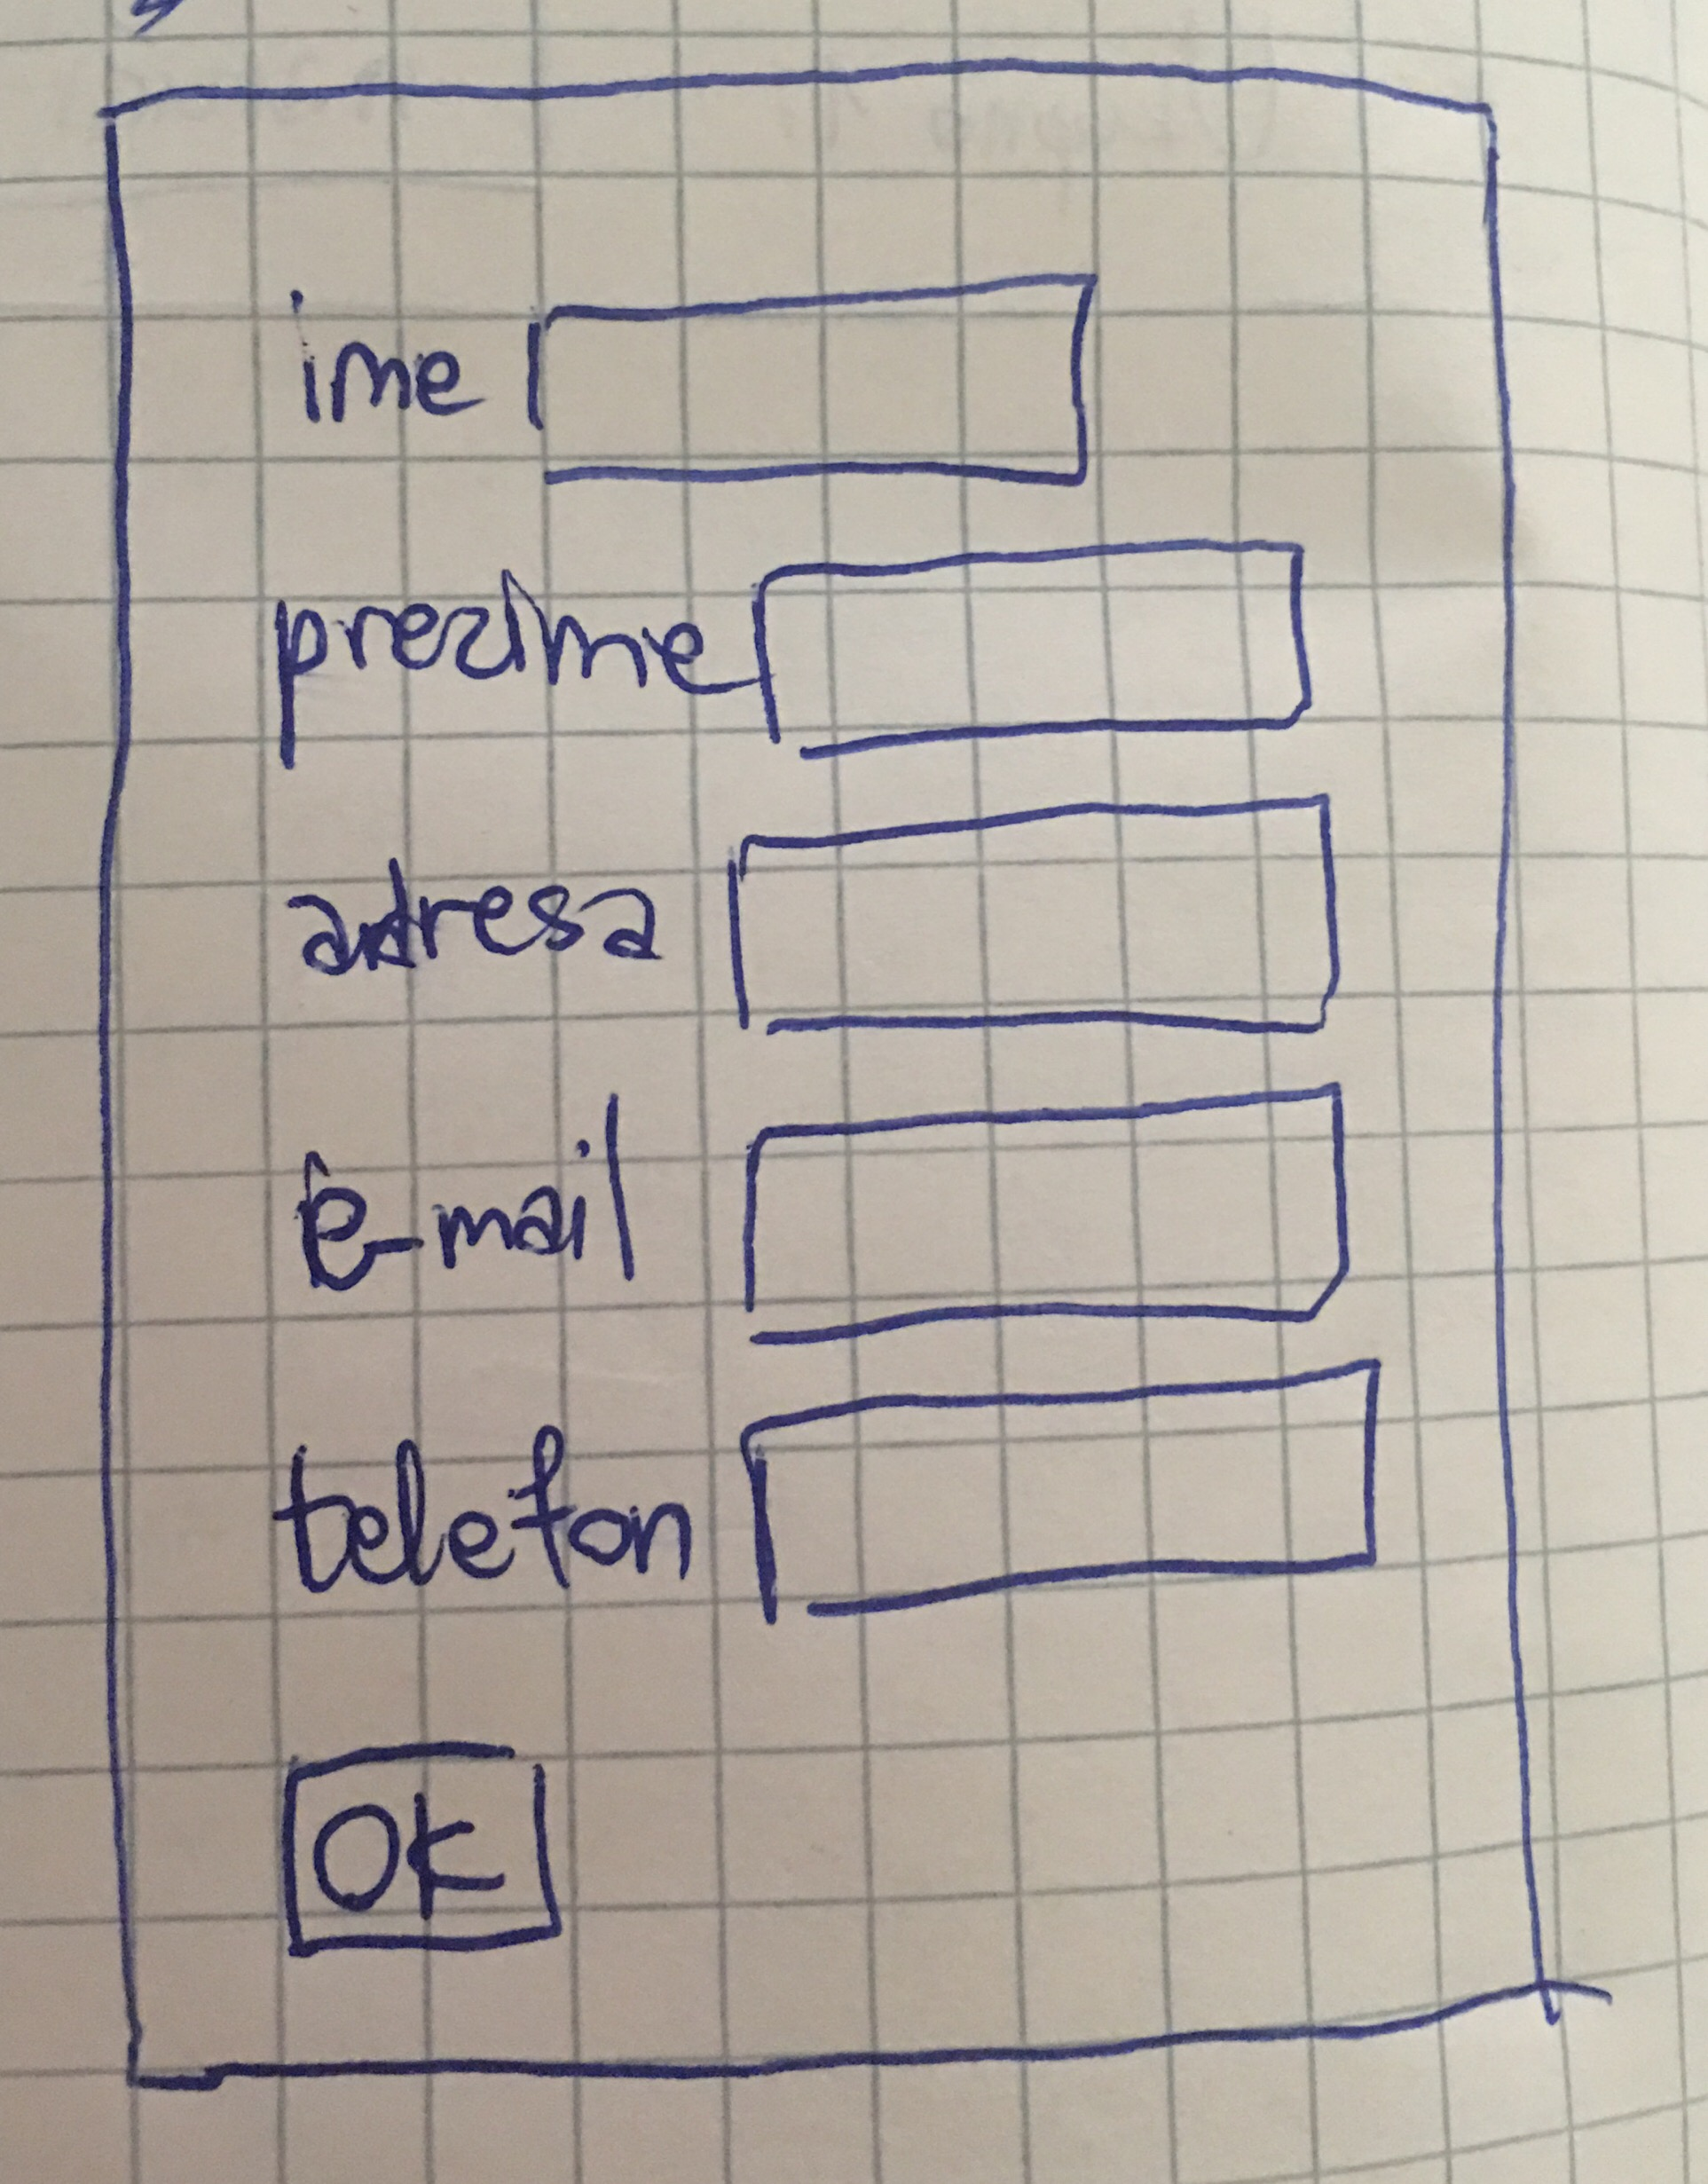 ime
prezime
adresa
e-mail
telefon
OK